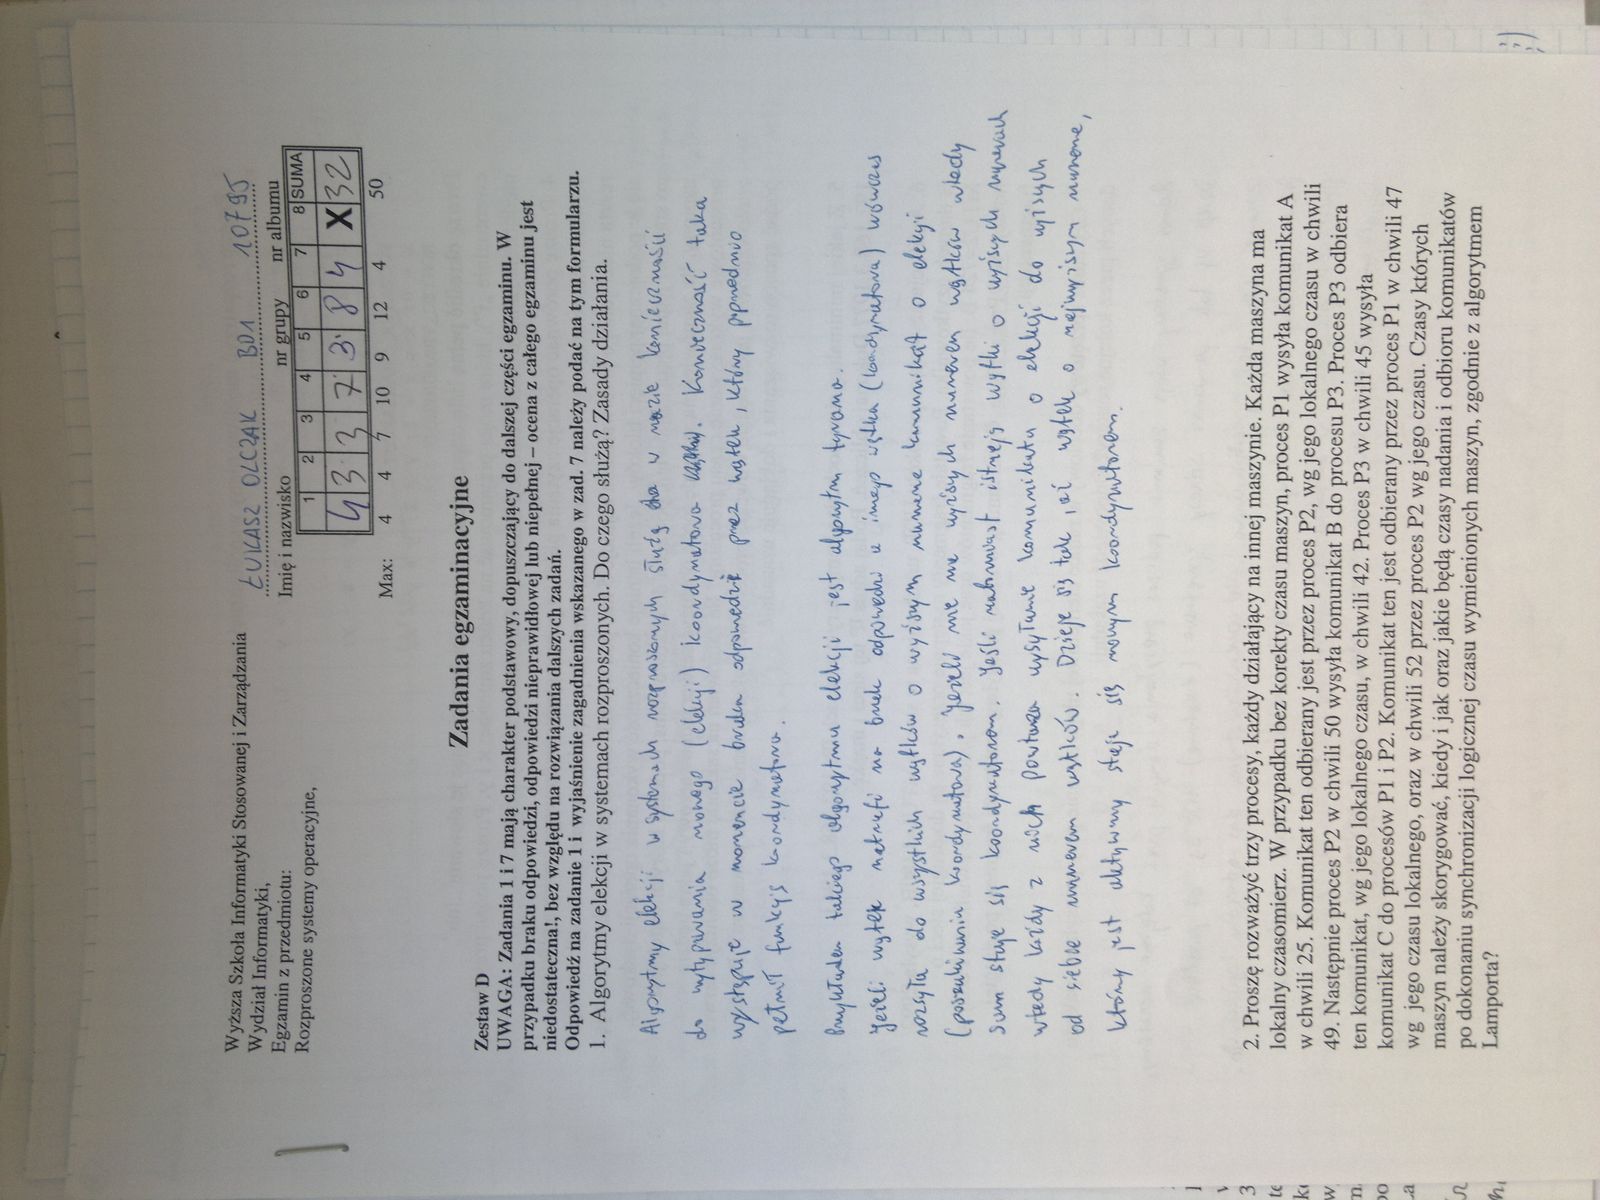 Wyższa Szkoła Informatyki Stosowanej i Zarządzania
Wydział Informatyki,
Egzamin z przedmiotu:
Rozproszone systemy operacyjne,
ŁUKASZ OLCZAK BD1 10795
Imię i nazwisko nr grupy nr albumu
1 2 3 4 5 6 7 8 SUMA
4 3 3 7 3 8 4 X 32
Max: 4 4 7 10 9 12 4 50
Zadania egzaminacyjne
Zestaw D
UWAGA: Zadania 1 i 7 mają charakter podstawowy, dopuszczający do dalszej części egzaminu. W
przypadku braku odpowiedzi, odpowiedzi nieprawidłowej lub niepełnej – ocena z całego egzaminu jest
niedostateczna!, bez względu na rozwiązania dalszych zadań.
Odpowiedź na zadanie 1 i wyjaśnienie zagadnienia wskazanego w zad. 7 należy podać na tym formularzu.
1. Algorytmy elekcji w systemach rozproszonych. Do czego służą? Zasady działania.
Algorytmy elekcji w systemach rozproszonych służą w razie konieczności
do wytypowania nowego (elekcji) koordynatora. Konieczność taka
występuje w momencie braku odpowiedzi przez wątek, który poprzednio
pełnił funkcję koordynatora.
Przykładem takiego algorytmu elekcji jest algorytm tyrana.
Jeżeli wątek natrafi na brak odpowiedzi z innego wątka (koordynatora) wówczas
rozsyła do wszystkich wątków o wyższym numerze komunikat o elekcji
(poszukiwaniu koordynatora). Jeżeli nie ma wyższych numerem wątków wtedy
sam staje się koordynatorem. Jeśli natomiast istnieją wątki o wyższych numerach
wtedy każdy z nich powtarza wysyłanie komunikatu o elekcji do wyższych
od siebie numerem wątków. Dzieje się tak, aż wątek o najwyższym numerze,
który jest aktywny staje się nowym koordynatorem.
2. Proszę rozważyć trzy procesy, każdy działający na innej maszynie. Każda maszyna ma
lokalny czasomierz. W przypadku bez korekty czasu maszyn, proces P1 wysyła komunikat A
w chwili 25. Komunikat ten odbierany jest przez proces P2, wg jego lokalnego czasu w chwili
49. Następnie proces P2 w chwili 50 wysyła komunikat B do procesu P3. Proces P3 odbiera
ten komunikat, wg jego lokalnego czasu, w chwili 42. Proces P3 w chwili 45 wysyła
komunikat C do procesów P1 i P2. Komunikat ten jest odbierany przez proces P1 w chwili 47
wg jego czasu lokalnego, oraz w chwili 52 przez proces P2 wg jego czasu. Czasy których
maszyn należy skorygować, kiedy i jak oraz jakie będą czasy nadania i odbioru komunikatów
po dokonaniu synchronizacji logicznej czasu wymienionych maszyn, zgodnie z algorytmem
Lamporta?